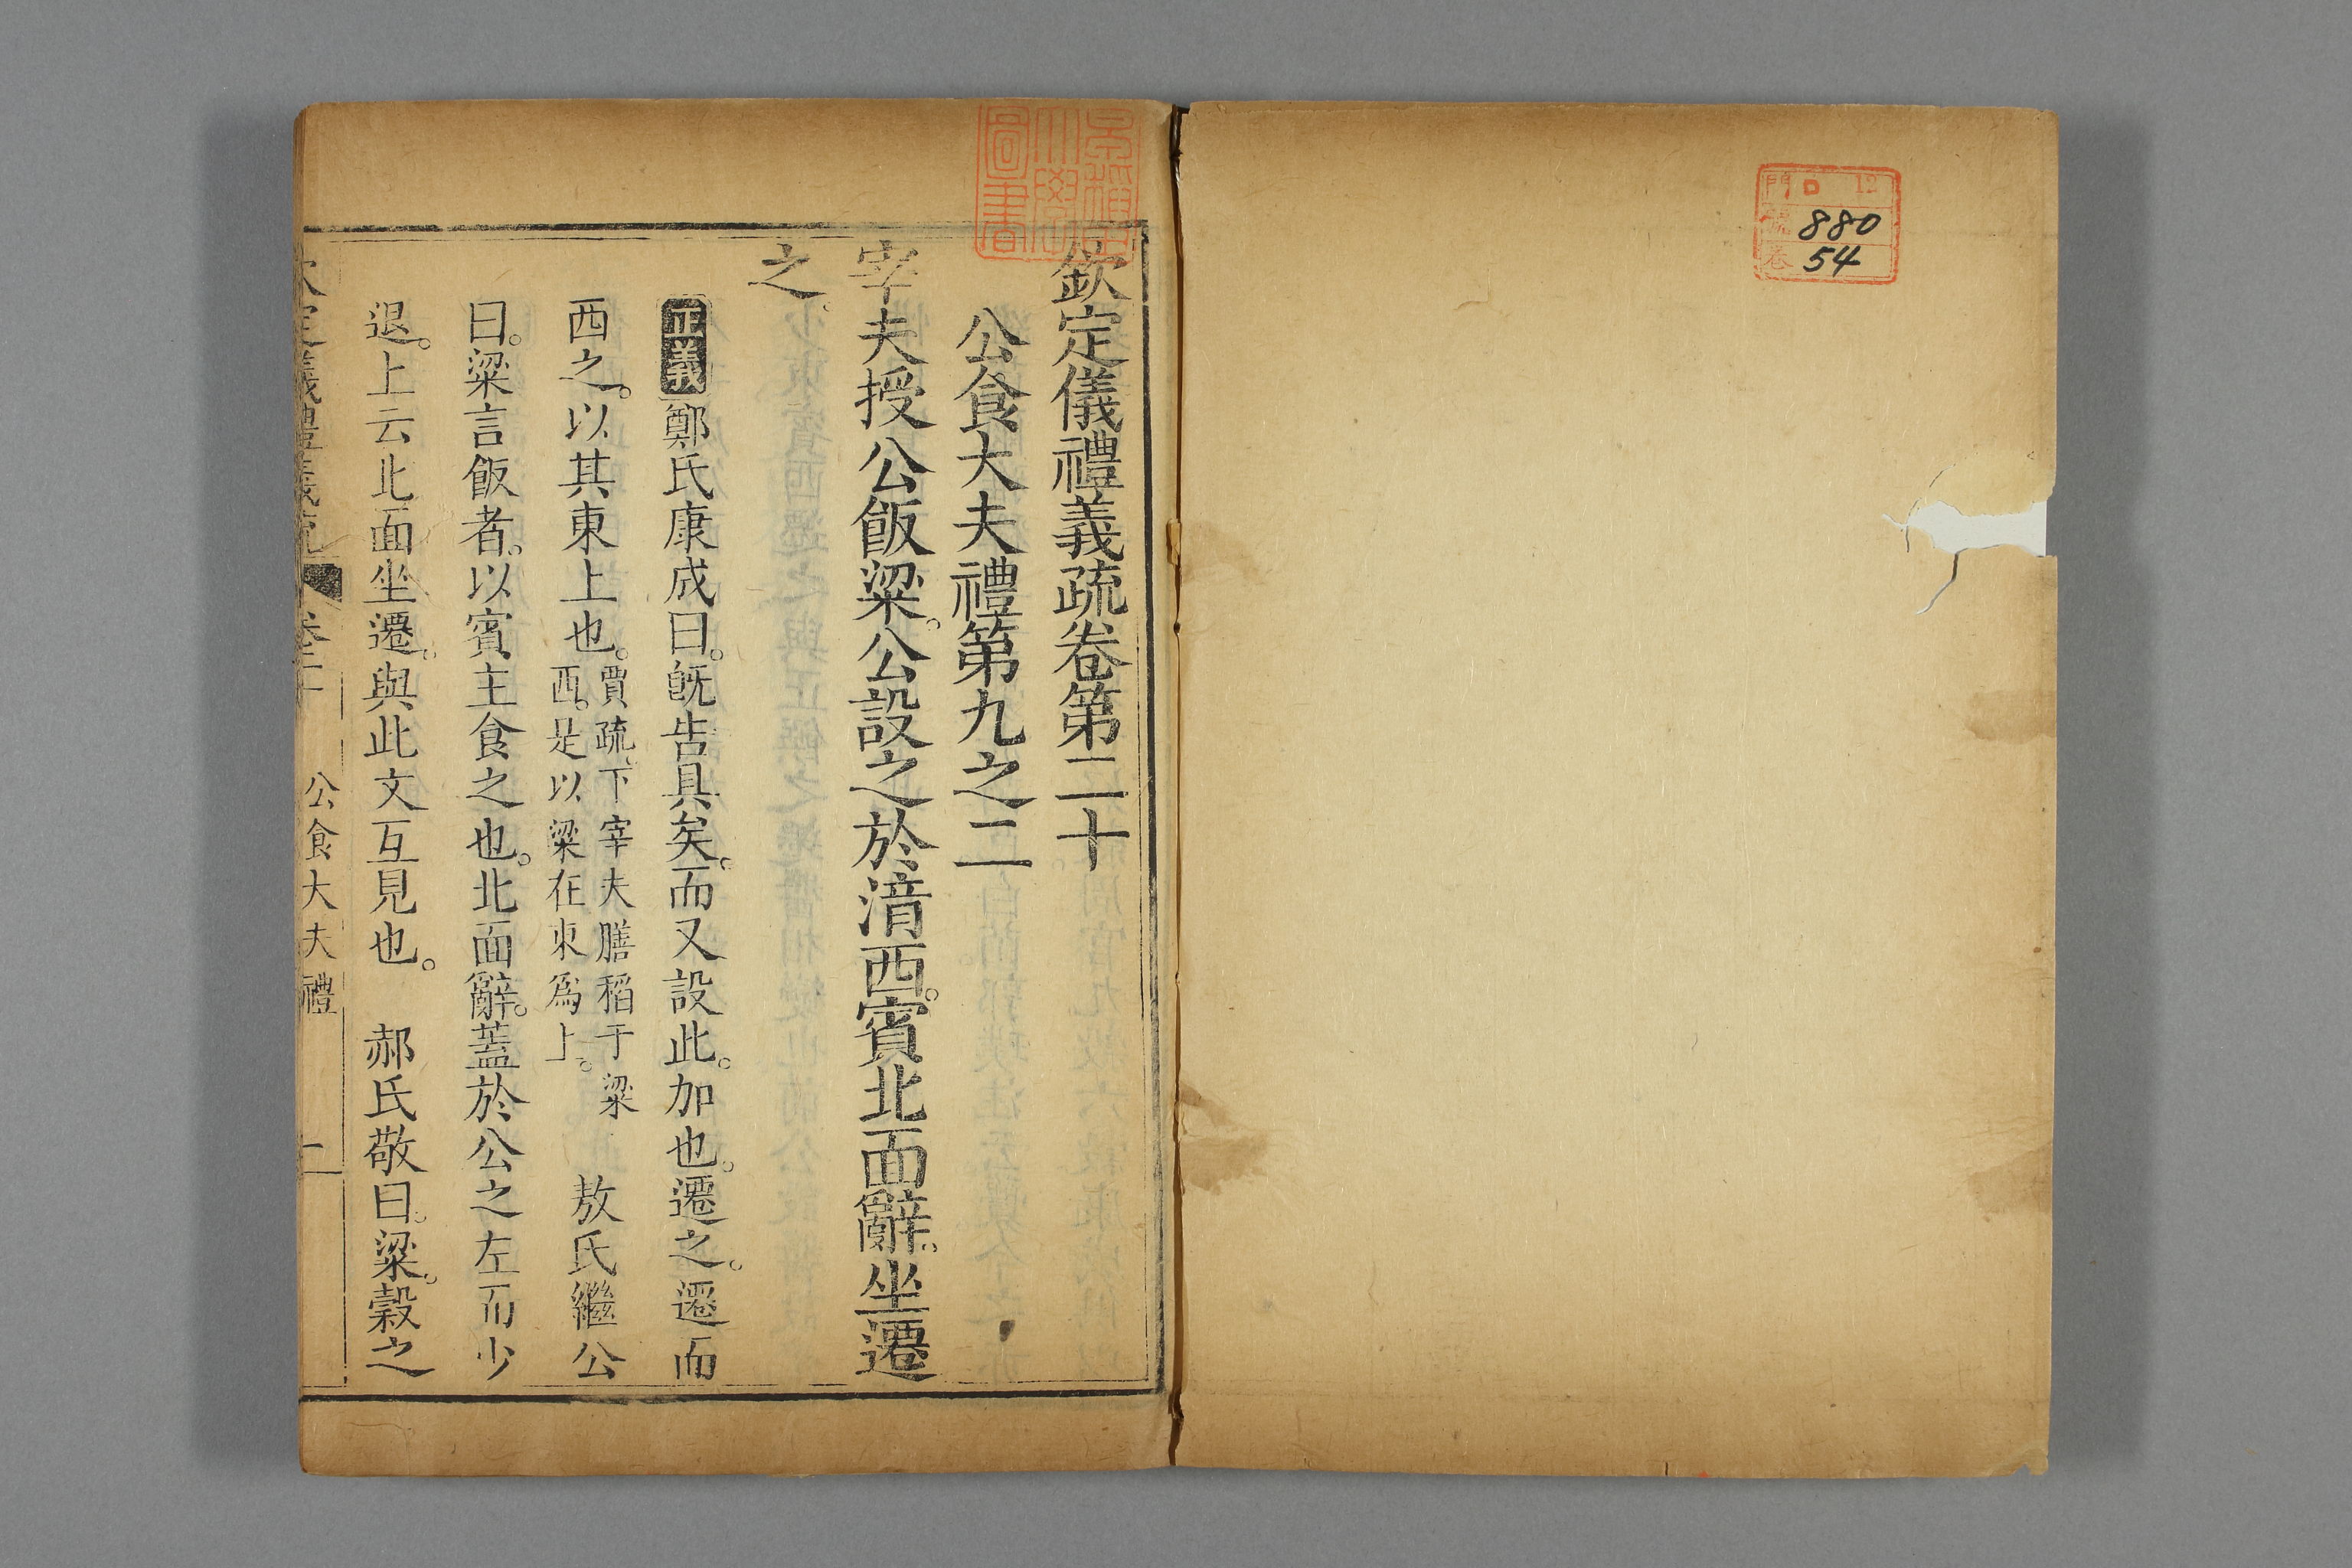 門 口 12
號 880
卷 54
圖書
欽定儀禮義疏卷第二十
公食大夫禮第九之二
宰夫授公飯粱。公設之於湇西。賓北面辭。坐遷
之。
正義 鄭氏康成曰。旣告具矣。而又設此。加也。遷之。遷而
西之。以其東上也。賈疏、下宰夫膳稻于粱西。是以粱在東爲上。 敖氏繼公
曰。粱言飯者。以賓主食之也。北面辭。蓋於公之左而少
退。上云北面坐遷。與此文互見也。 郝氏敬曰。粱。穀之
欽定儀禮義疏 卷二十 公食大夫禮